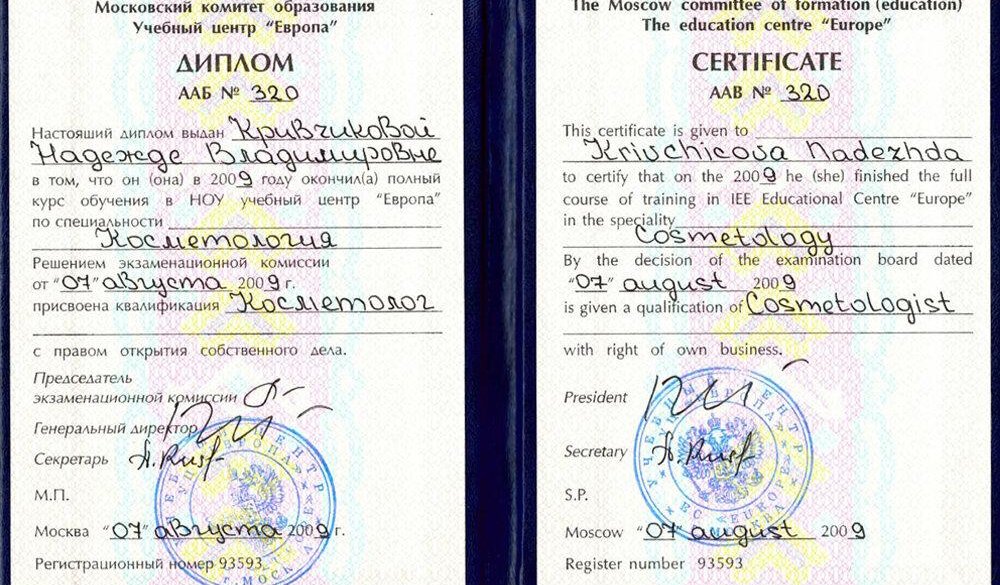 Московский комитет образования
Учебный центр "Европа"
ДИПЛОМ
ААБ № 320
Настоящий диплом выдан Кривчиковой
Надежде Владимировне
в том, что он (она) в 2009 году окончил(а) полный
курс обучения в НОУ учебный центр "Европа"
по специальности
Косметология
Решением экзаменационной комиссии
от "07" августа 2009 г.
присвоена квалификация Косметолог
с правом открытия собственного дела.
Председатель
экзаменационной комиссии
Генеральный директор
Секретарь
М.П.
Москва "07" августа 2009 г.
Регистрационный номер 93593
The Moscow committee of formation (education)
The education centre "Europe"
CERTIFICATE
AAB № 320
This certificate is given to
Krivchicova Nadezhda
to certify that on the 2009 he (she) finished the full
course of training in IEE Educational Centre "Europe"
in the speciality
Cosmetology
By the decision of the examination board dated
"07" august 2009
is given a qualification of Cosmetologist
with right of own business.
President
Secretary
S.P.
Moscow "07" august 2009
Register number 93593